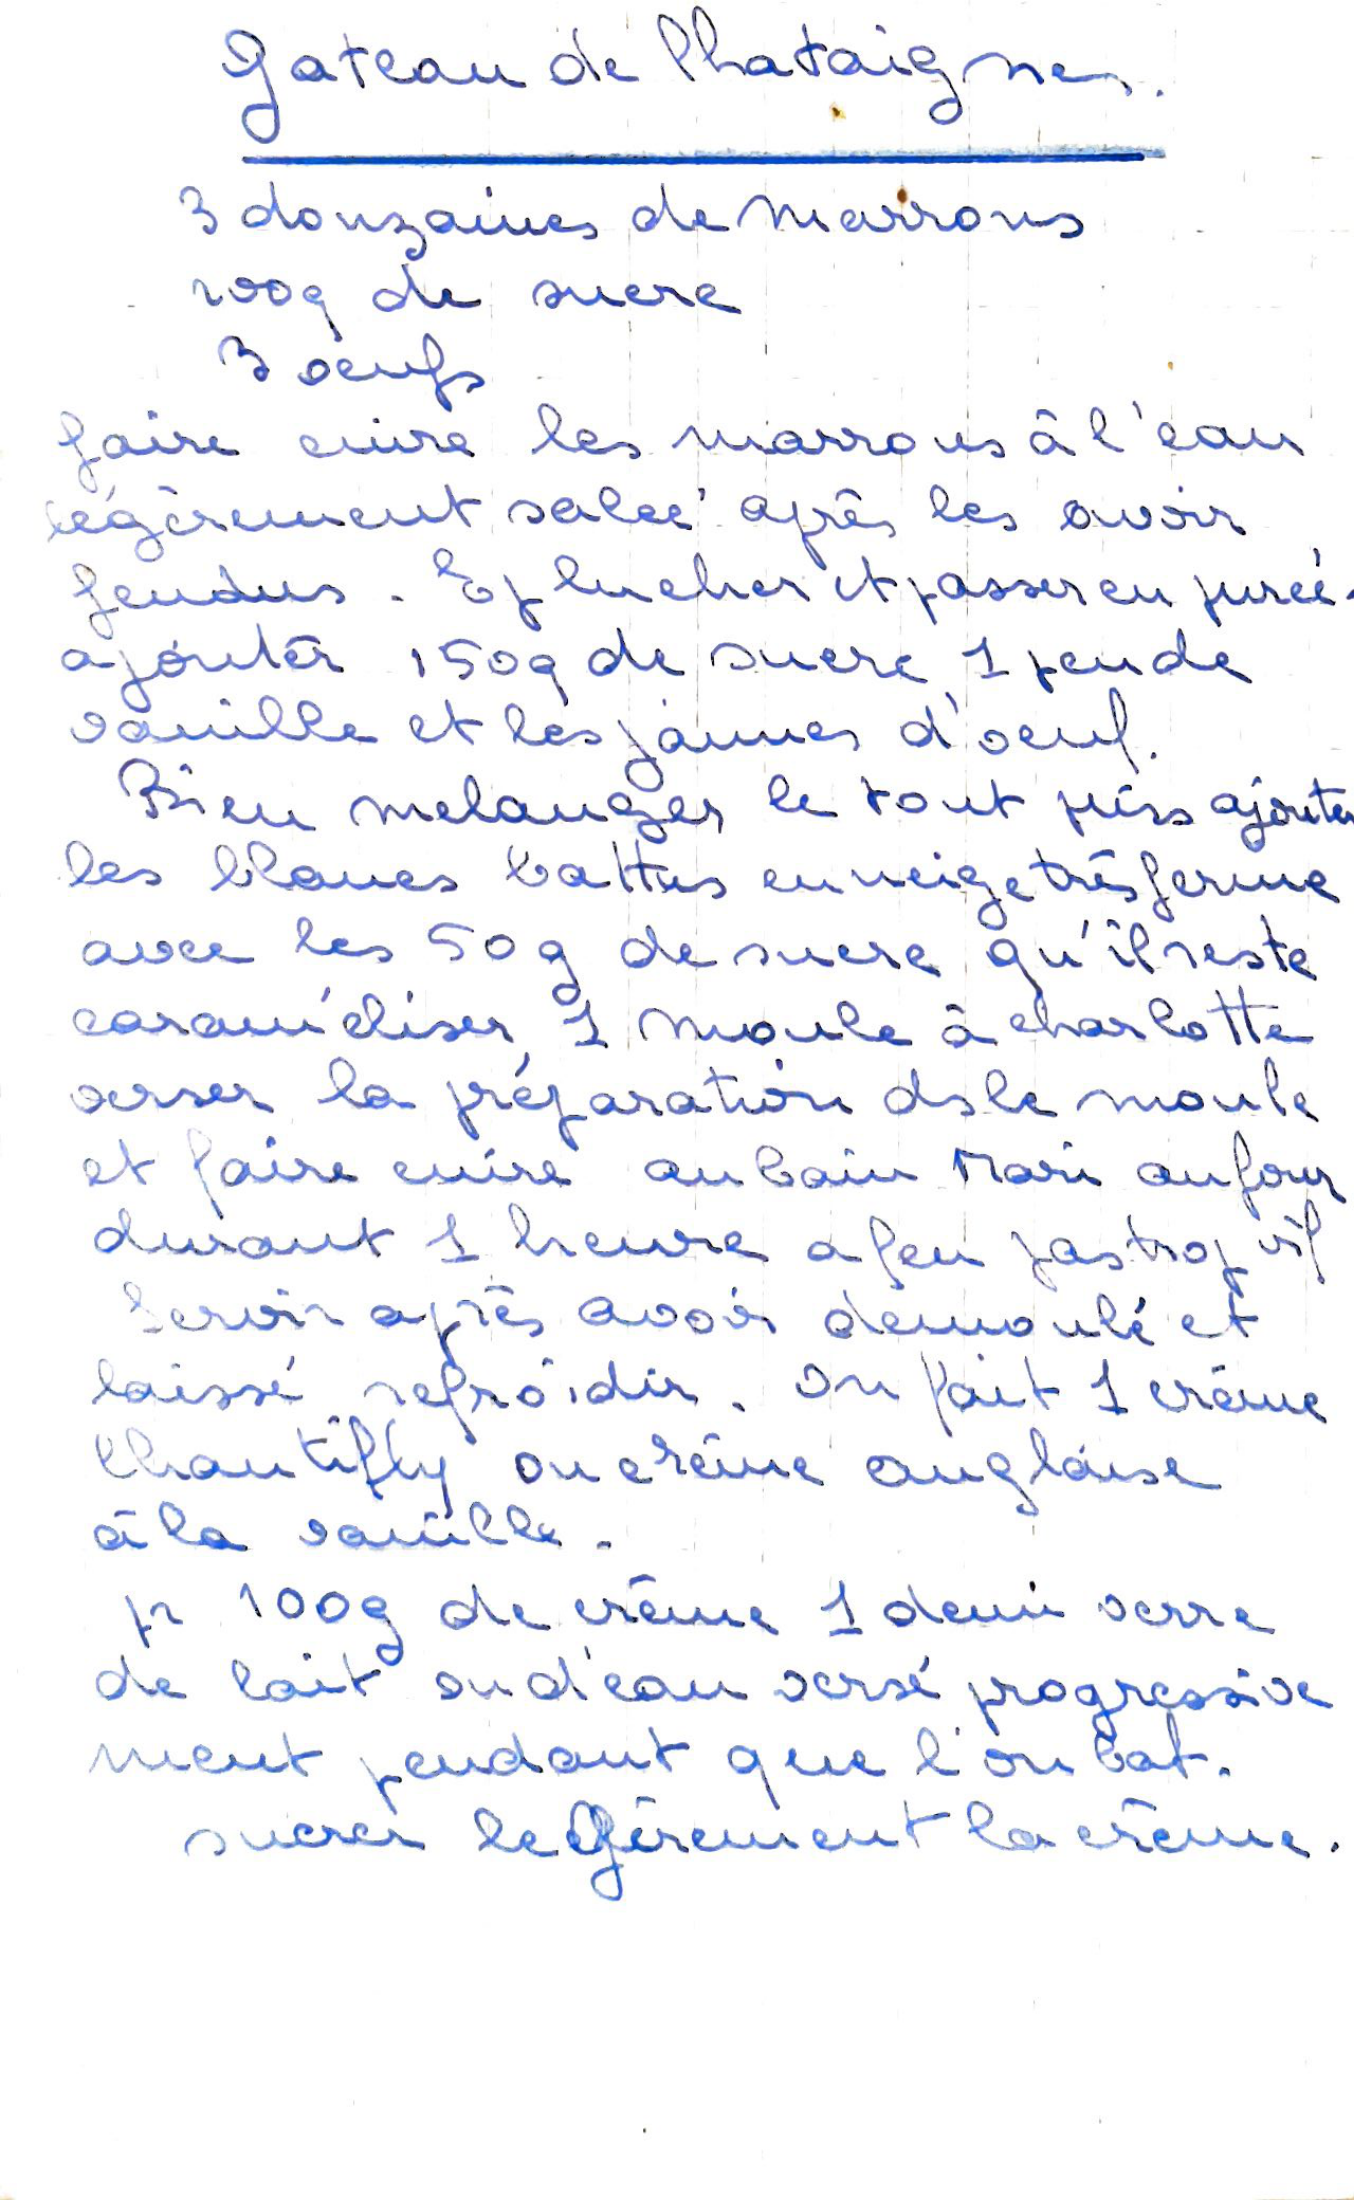 Gateau de Chataignes.
3 douzaines de marrons
200g de sucre
3 oeufs
faire cuire les marrons à l'eau
légèrement salée après les avoir
fendus. Eplucher et passer en purée.
ajouter 150g de sucre, 1 peu de
vanille et les jaunes d'oeuf.
Bien melanger le tout puis ajouter
les blancs battus en neige très ferme
avec les 50g de sucre qu'il reste
caraméliser 1 moule à charlotte
verser la préparation ds le moule
et faire cuire au bain Mari au four
durant 1 heure a feu pas trop vif
Servir après avoir démoulé et
laissé refroidir. On fait 1 crème
Chantilly ou crème anglaise
à la vanille.
pr 100g de crème 1 demi verre
de lait ou d'eau versé progressive
ment pendant que l'on bat.
sucrer legèrement la crème.